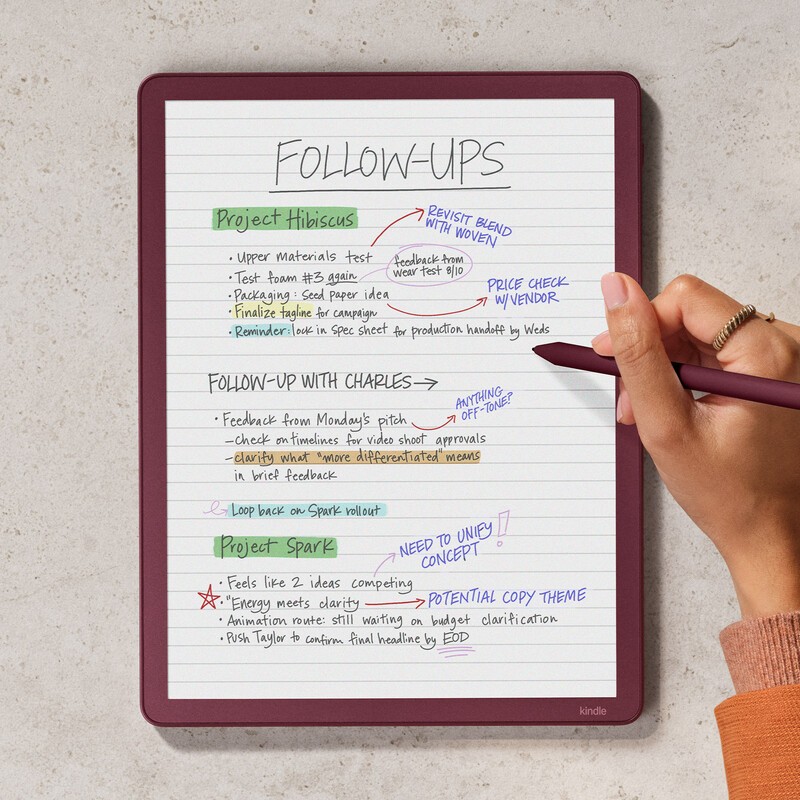 FOLLOW-UPS
Project Hibiscus
REVISIT BLEND
WITH WOVEN
• Upper materials test
• Test foam #3 again
feedback from
wear test 8/10
• Packaging: Seed paper idea
PRICE CHECK
W/VENDOR
• Finalize tagline for campaign
• Reminder: lock in spec sheet for production handoff by Weds
FOLLOW-UP WITH CHARLES →
ANYTHING
OFF-TONE?
• Feedback from Monday's pitch
– check on timelines for video shoot approvals
– clarify what "more differentiated" means
in brief feedback
Loop back on Spark rollout
Project Spark
NEED TO UNIFY
CONCEPT!
• Feels like 2 ideas competing
• "Energy meets clarity → POTENTIAL COPY THEME
• Animation route: still waiting on budget clarification
• Push Taylor to confirm final headline by EOD
kindle